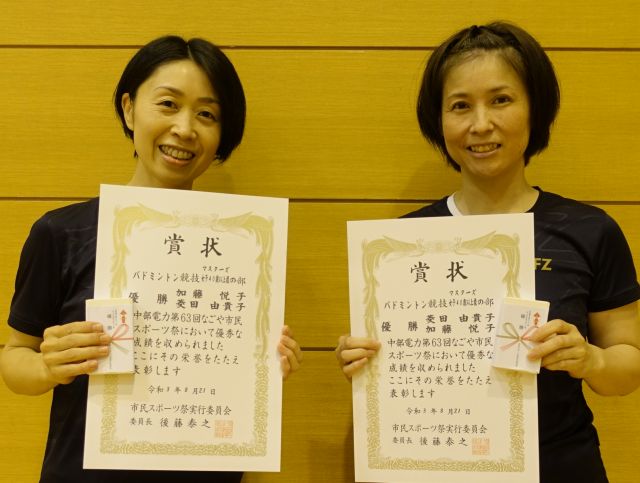 賞状
マスターズ
バドミントン競技
の部
優勝
加藤 悦子
菱田 由貴子
中部電力第63回なごや市民
スポーツ祭において優秀な
成績を収められました
ここにその栄誉をたたえ
表彰します
市民スポーツ祭実行委員会
委員長 後藤泰之
賞状
マスターズ
バドミントン競技
の部
優勝
菱田 由貴子
加藤 悦子
中部電力第63回なごや市民
スポーツ祭において優秀な
成績を収められました
ここにその栄誉をたたえ
表彰します
市民スポーツ祭実行委員会
委員長 後藤泰之
FZ